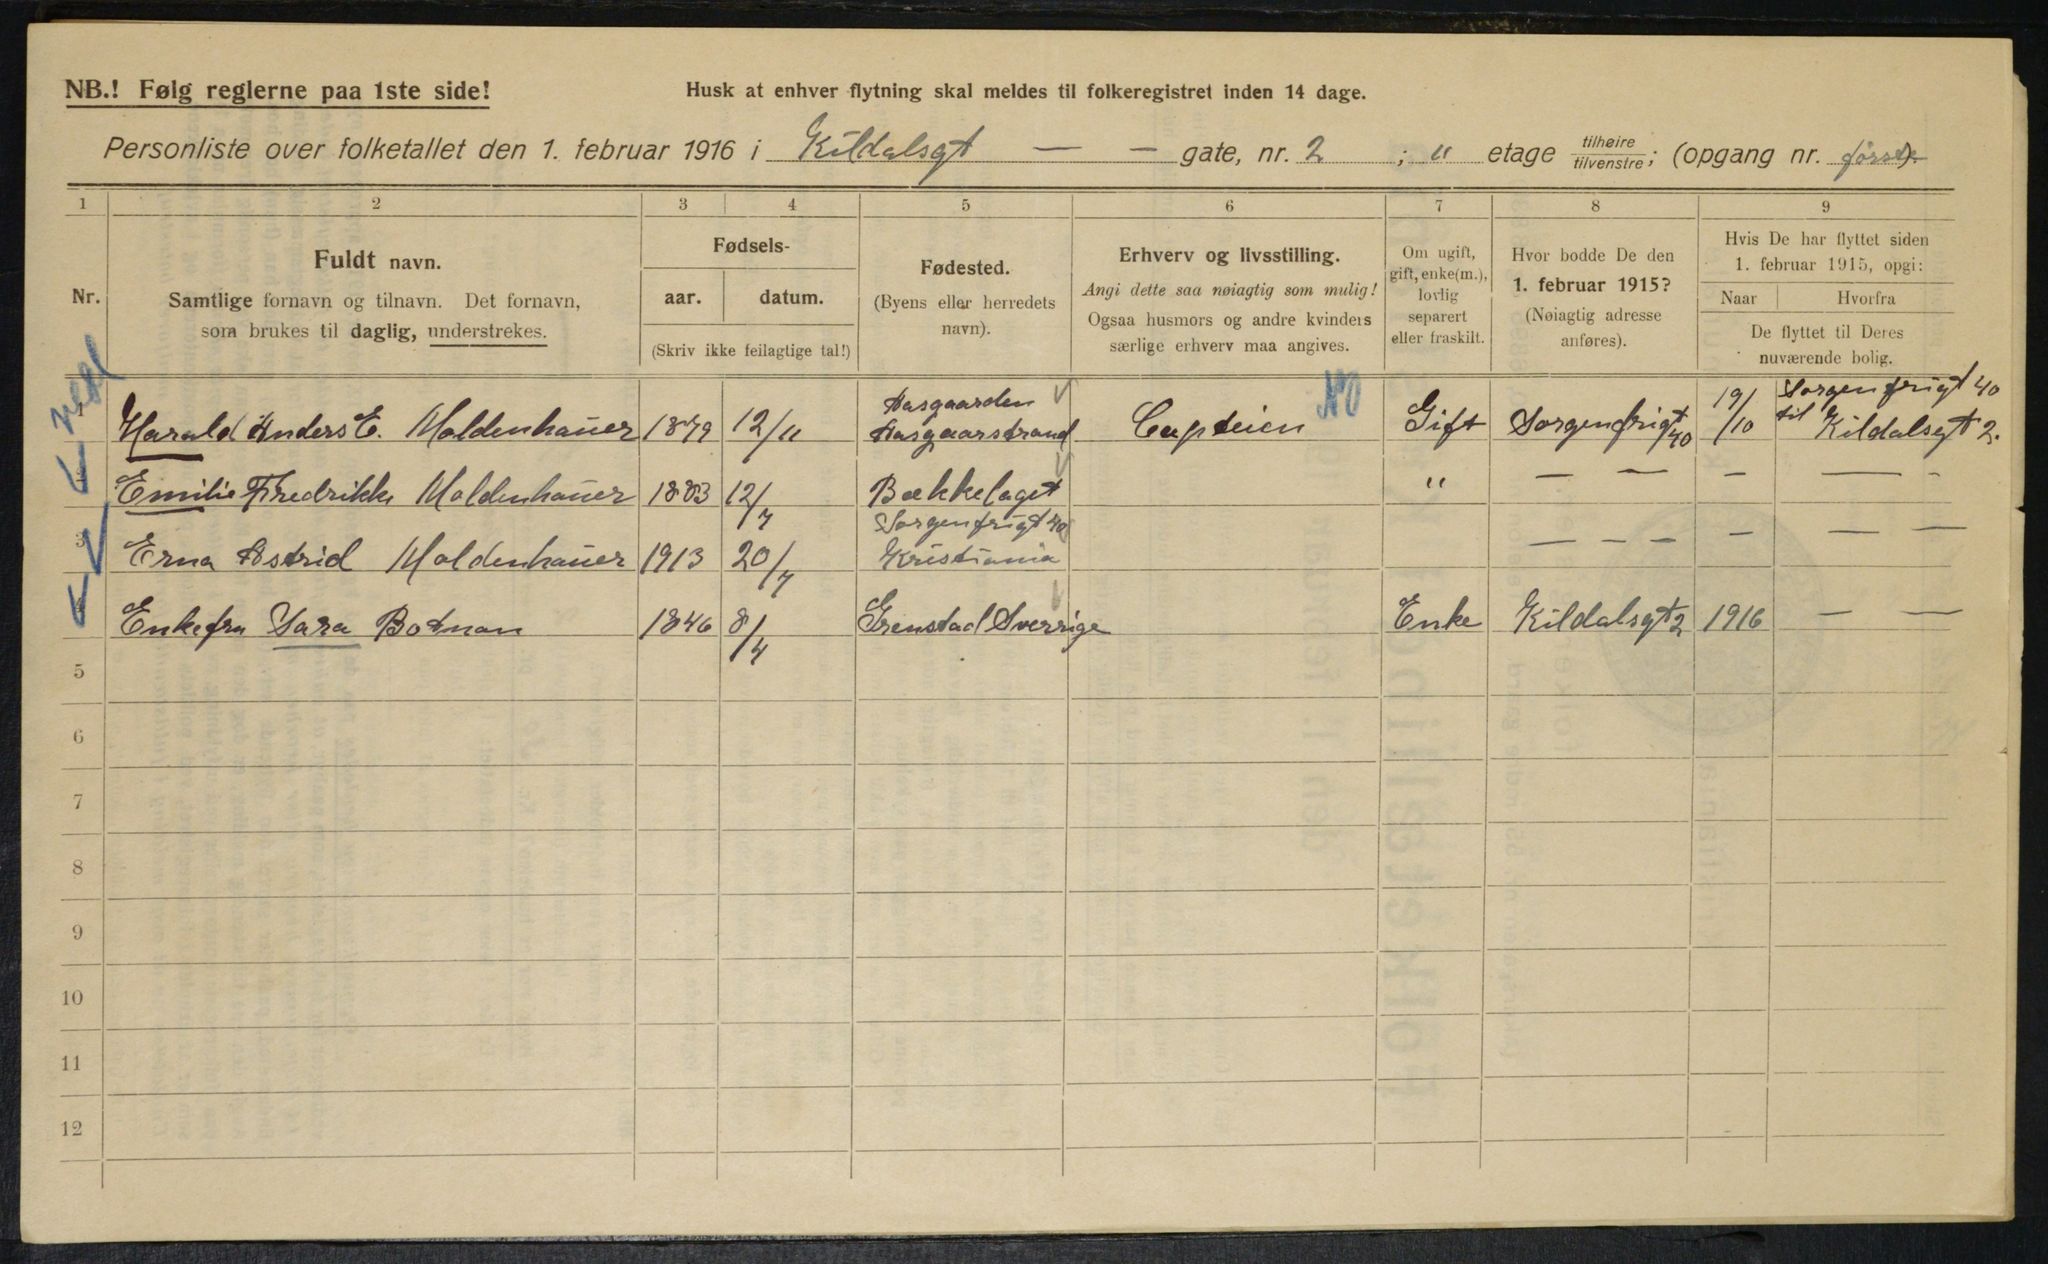 NB.! Følg reglerne paa 1ste side!
Husk at enhver flytning skal meldes til folkeregistret inden 14 dage.
Personliste over folketallet den 1. februar 1916 i Kildalsgt — — gate, nr. 2 ; " etage tilhøire / tilvenstre; (opgang nr. første).
1 2 3 4 5 6 7 8 9
Nr.
Fuldt navn.
Samtlige fornavn og tilnavn. Det fornavn,
som brukes til daglig, understrekes.
Fødsels-
aar. datum.
(Skriv ikke feilagtige tal!)
Fødested.
(Byens eller herredets
navn).
Erhverv og livsstilling.
Angi dette saa nøiagtig som mulig!
Ogsaa husmors og andre kvinders
særlige erhverv maa angives.
Om ugift,
gift, enke(m.),
lovlig
separert
eller fraskilt.
Hvor bodde De den
1. februar 1915?
(Nøiagtig adresse
anføres).
Hvis De har flyttet siden
1. februar 1915, opgi:
Naar Hvorfra
De flyttet til Deres
nuværende bolig.
Harald Anders E. Moldenhauer 1879 12/11 Aasgaarden Aasgaarstrand Capteien Gift Sorgenfrigt 40 19/10 Sorgenfrigt 40 til Kildalsgt 2.
Emilie Fredrikke Moldenhauer 1883 12/7 Bækkelaget " — — — — -
3 Erna Astrid Moldenhauer 1913 20/7 Sorgenfrigt 40 Kristiania — — — — — —
Enkefru Sara Botman 1846 8/4 Grenstad Sverrige Enke Kildalsgt 2 1916 — —
5
6
7
8
9
10
11
12